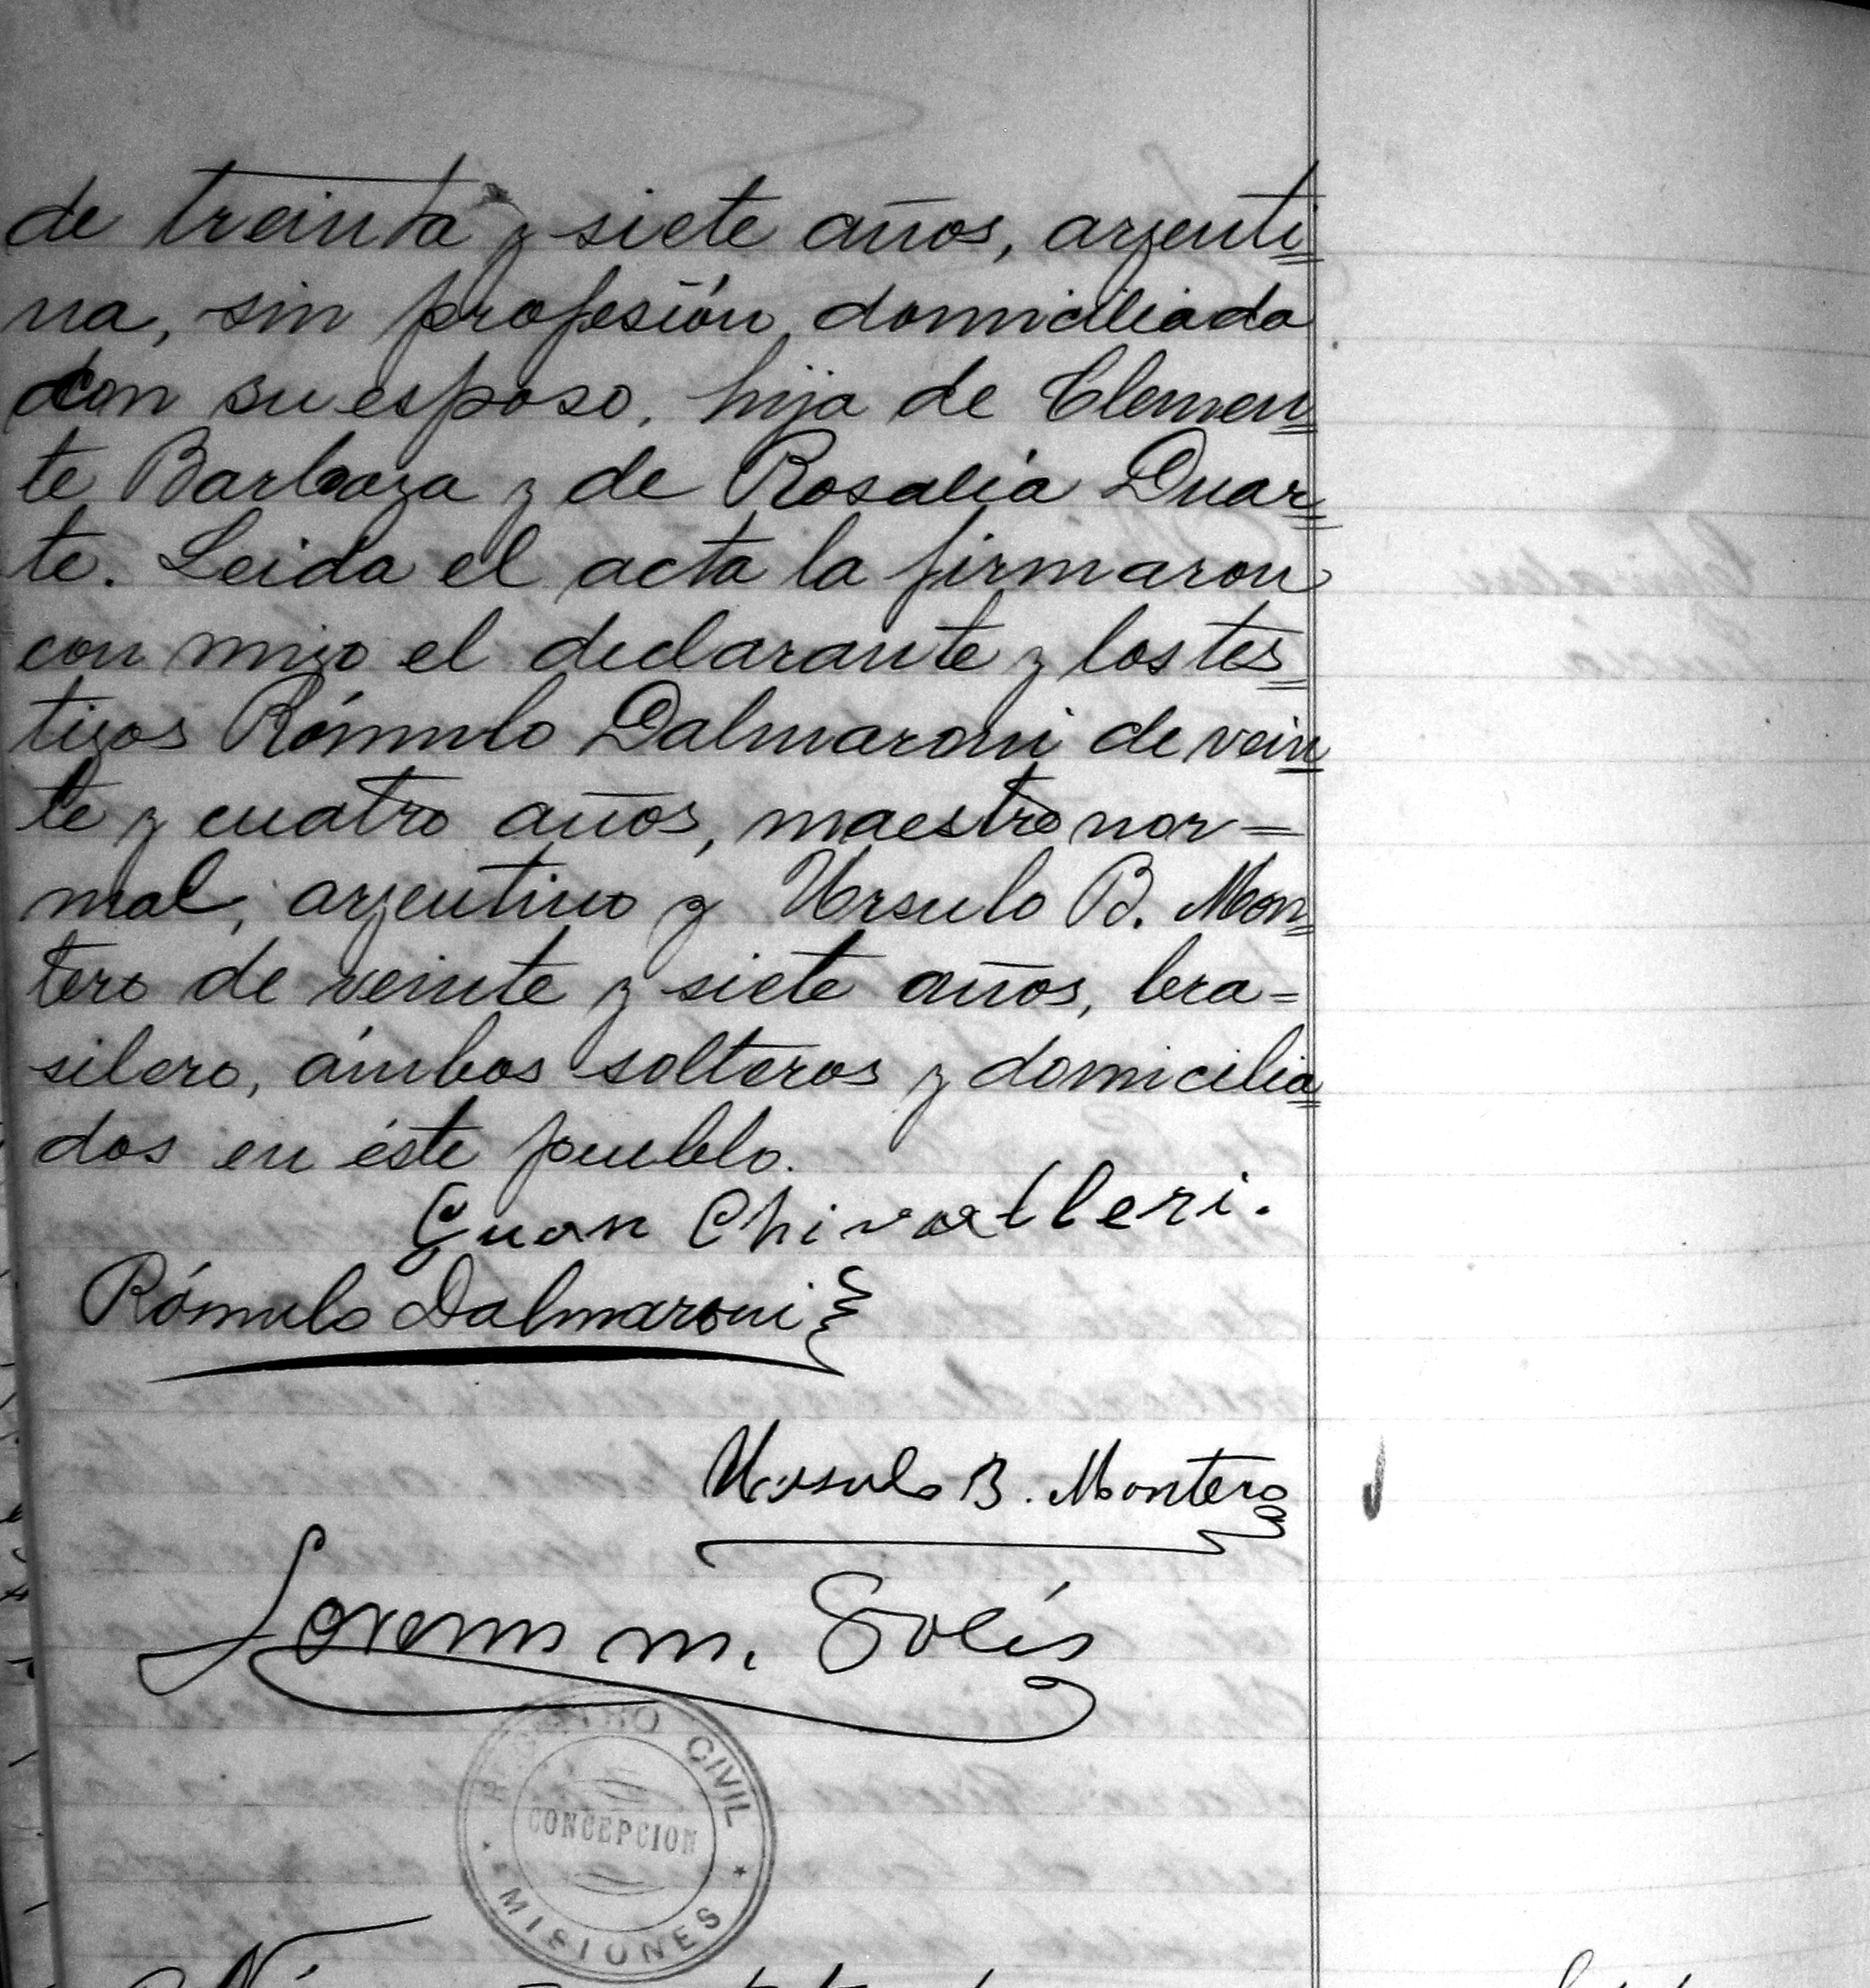 de treinta y siete años, arjenti=
na, sin profesión, domiciliada
con su esposo, hija de Clemen=
te Barboza y de Rosalía Duar=
te. Leida el acta la firmaron
con migo el declarante y los tes=
tigos Rómulo Dalmaroni de vein=
te y cuatro años, maestro nor=
mal, arjentino y Ursulo B. Mon=
tero de veinte y siete años, bra=
silero, ámbos solteros y domicilia=
dos en éste pueblo.
Juan Chivalleri.
Rómulo Dalmaroni
Ursulo B. Montero
Lorenzo M. Solís
REGISTRO CIVIL
CONCEPCION
MISIONES